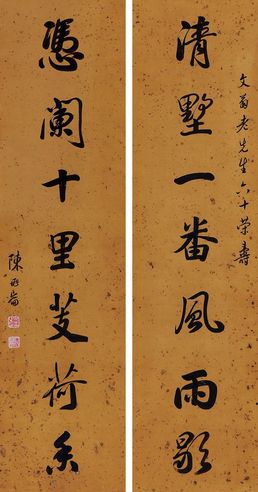 清墅一番風雨歇
文翁老先生六十荣壽
憑闌十里芰荷香
陳